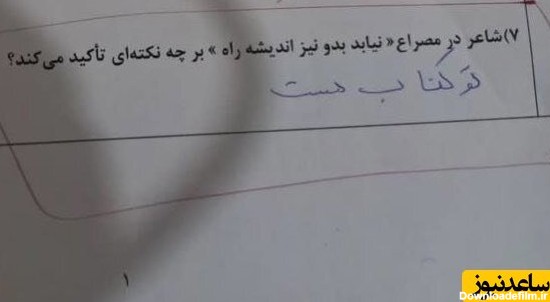 ۷)شاعر در مصراع « نیابد بدو نیز اندیشه راه » بر چه نکته‌ای تأکید می‌کند؟
تو کتاب هست
۱
ساعدنیوز
Downloadefilm.ir